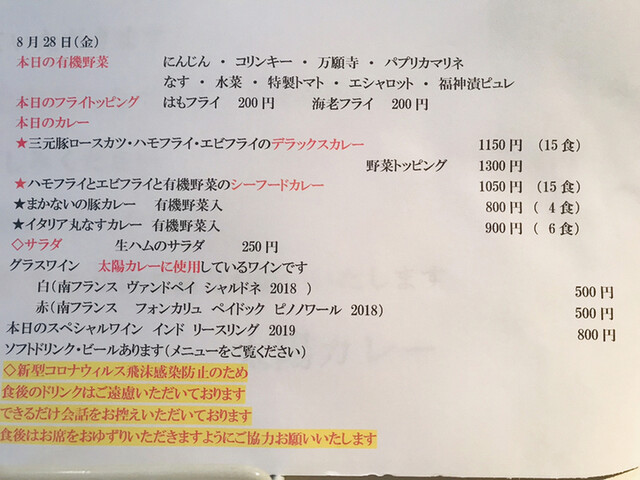 8月28日(金)
本日の有機野菜 にんじん・コリンキー・万願寺・パプリカマリネ
なす・水菜・特製トマト・エシャロット・福神漬ピュレ
本日のフライトッピング はもフライ 200円 海老フライ 200円
本日のカレー
★三元豚ロースカツ・ハモフライ・エビフライのデラックスカレー 1150円 (15食)
野菜トッピング 1300円
★ハモフライとエビフライと有機野菜のシーフードカレー 1050円 (15食)
★まかないの豚カレー 有機野菜入 800円 ( 4食)
★イタリア丸なすカレー 有機野菜入 900円 ( 6食)
◇サラダ 生ハムのサラダ 250円
グラスワイン 太陽カレーに使用しているワインです
白(南フランス ヴァンドペイ シャルドネ 2018 ) 500円
赤(南フランス フォンカリュ ペイドック ピノノワール 2018) 500円
本日のスペシャルワイン インド リースリング 2019 800円
ソフトドリンク・ビールあります(メニューをご覧ください)
◇新型コロナウィルス飛沫感染防止のため
食後のドリンクはご遠慮いただいております
できるだけ会話をお控えいただいております
食後はお席をおゆずりいただきますようにご協力お願いいたします